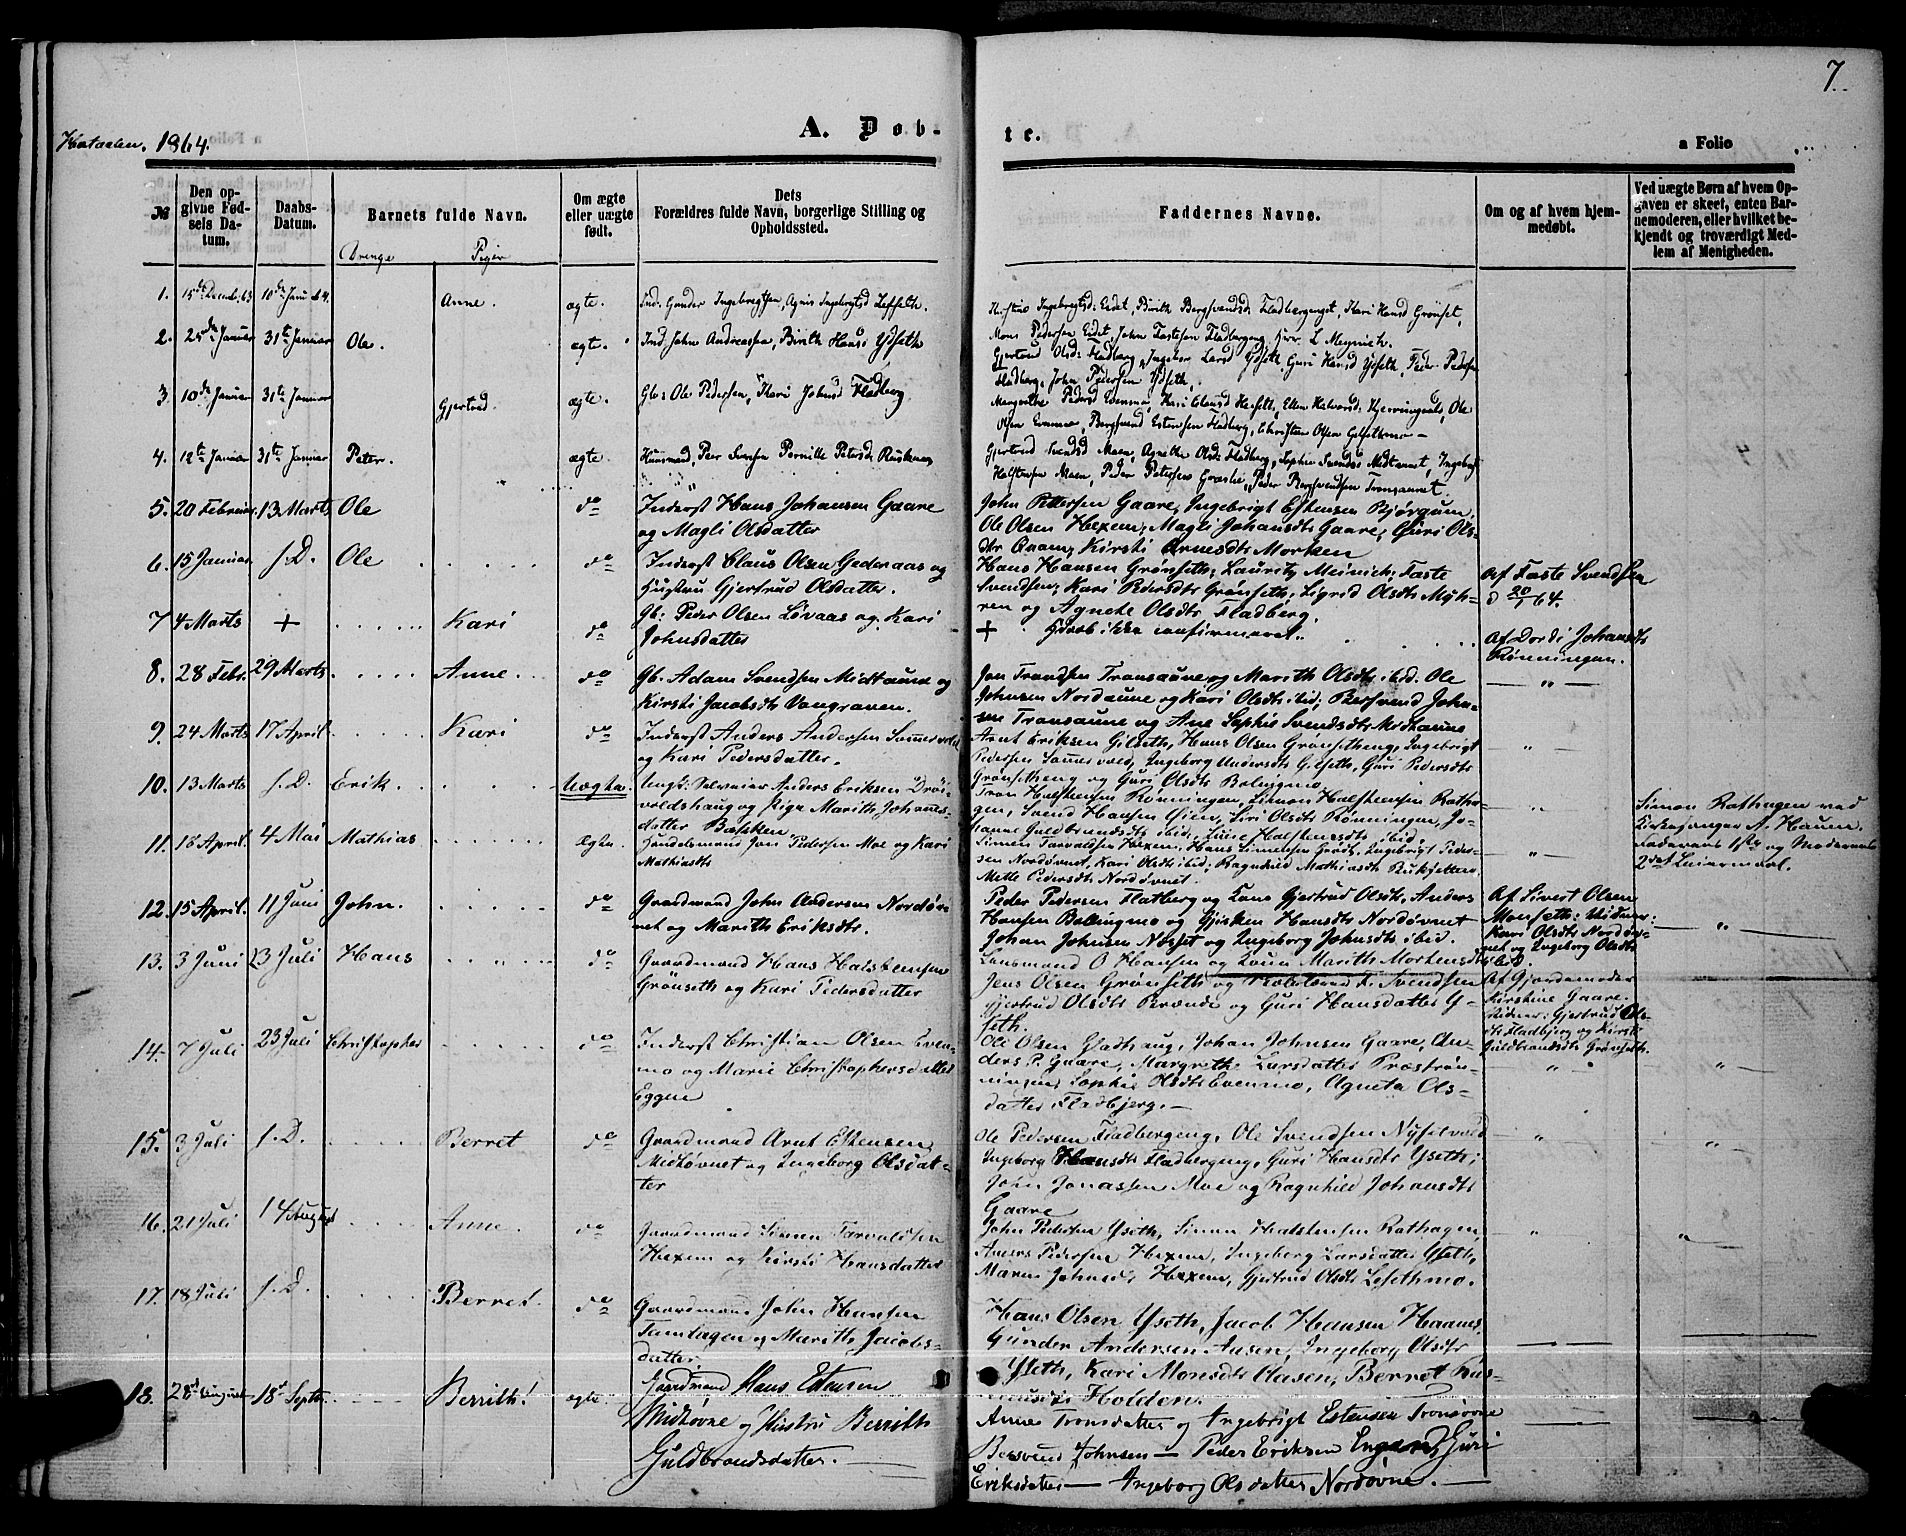 7.
Hataelen. 1864.
A. Døb-
te.
a Folio
№
Den op-
givne Fød-
sels Da-
tum.
Daabs-
Datum.
Barnets fulde Navn.
Drenge
Piger
Om ægte
eller uægte
født.
Dets
Forældres fulde Navn, borgerlige Stilling og
Opholdssted.
Faddernes Navne.
Om og af hvem hjem-
medøbt.
Ved uægte Børn af hvem Op-
gaven er skeet, enten Bar-
nemoderen, eller hvilket be-
kjendt og troværdigt Med-
lem af Menigheden.
1. 15de Decemb. 63 10de Janu 64. Anne. ægte. Ind. Gunder Ingebregtsen, Agnis Ingebrigtsd
Ingebregtsd: Eidet, Birith Bergsvendsd Fladbergenget, Kari Hansd Grønset,
Mons Pedersen Eidet, John Fastesen Fladbergeng, Herr L Meynich.
2. 25de Januar 31te Januar Ole. ægte. Ind. John Andreassen, Birith Hansd Ydseth
Gjertrud Olsd: Fladberg, Ingebor Larsd Ydseth, Guri Hansd Ydseth, Peder Peders
Fladberg, John Pedersen Ydseth.
3. 10de Januar 31te Januar Gjertrud. ægte. Gb: Ole Pedersen, Kari Johnsd Fladberg
Margrethe Pedersd Evenmo, Kari Ole
Olsen Evenmo, Bergsvend Estensen Fladberg, Christen Olsen
4. 12te Januar 31te Januar Peter. ægte. Huusmand, Peer Pernille Petersd:
Gjertrud Svendsd Moen, Agnethe Olsd: Fladberg, Sophie Svendsd Midtaunet, Ingebrigt
Halstensen Moen, Peder Petersen Græslie, Peder Bergsvendsen Tronsaunet.
5. 20 Februar. 13 Marts Ole do Inderst Hans Johansen Gaare
og Magli Olsdatter
John Pettersen Gaare, Ingebrigt Estensen Bjørgum,
Ole Olsen Hexem, Magli Johansdtr Gaare, Guri Ols-
dtr Qvam, Kirsti Arnesdtr Morken
6. 15 Januar s. D. Ole do Inderst Claus Olsen Gederaas og
Hustru Gjertrud Olsdatter.
Hans Hansen Grønseth, Lauritz Meinich, Faste
Svendsen, Kari Pedersdtr Grønseth, Sigrid Olsdtr Myh-
ren og Agnete Olsdtr Fladberg.
Af Faste Svendsen
d 20/1 64.
7 4 Marts + Kari do Gb: Peder Olsen Løvaas og Kari
Johnsdatter
+ Daab ikke confirmeret.
Af Dordi Johansdtr
Rønningen.
8. 28 Febr. 29 Marts Anne. do Gb. Adam Svendsen Midtaune og
Kirsti Jacobsdtr Vangraven.
Jon Trondsen Transaune og Marith Olsdtr ibid. Ole
Johnsen Nordaune og Kari Olsdtr ibid; Bersvend John-
sen Transaune og Ane Sophie Svendsdtr Midtaune
— " —
9. 24 Marts 17 April. Kari do Inderst Anders Andersen Sommervold
og Kari Pedersdatter.
Arnt Eriksen Gilseth, Hans Olsen Grønsetheng, Ingebrigt
Pedersen Sommervold, Ingeborg Andersdtr Gilseth, Guri Pedersdtr
Grønsetheng og Guri Olsdtr Bolingmo
" —
10. 13 Marts s. D. Erik Uægte. Ungk: Anders Eriksen Drøi-
voldshaug og Pige Marith Johannes-
datter Bæk
Tron Halstensen Rønningen, Simon Halstensen Rotha-
gen, Svend Hansen Øien, Siri Olsdtr Rønningen, Jo-
hanne Guldbrandsdtr ibid, Halstensdtr ibid
Simon Rothagen ved
Kirkesanger A. Haum.
Faderens 1ste og Moderens
2det Leiermaal.
11. 18 April. 4 Mai Mathias Ægte. Handelsmand Jon Pedersen Moe og Kari
Mathiasdtr
Simen Tarvaldsen Hexem, Hans Simensen Ingebrigt Peder-
sen Nordøvnet, Kari Olsdtr ibid; Ragnhild Mathiasdtr
Mette Pedersdtr Nordøvnet.
— " —
12. 15 April. 11 Juni John. do Gaardmand John Andersen Nordøv-
net og Marith Eriksdtr.
Peder Pedersen Flatberg og Kone Gjertrud Olsdtr, Anders
Hansen Bolingmo og Hansdtr Nordøvnet
Johan Johnsen Næsset og Ingeborg Johnsdtr ibid.
Af Sivert Olsen
Monseth: Vidner:
Kari Olsdtr Nordøv-
net og Ingeborg Olsdtr
ibid.
— " —
13. 3 Juni 23 Juli Hans do Gaardmand Hans Halstensen
Grönseth og Kari Pedersdatter
Lensmand O Hansen og Kone Marith Mortensdtr
Jens Olsen Grønseth og F. Svendsen
Gjertrud Olsdtr og Guri Hansdatter
seth.
Af Gjordemoder
Kirstine Gaare.
Vidner: Gjertrud Ols-
dtr Fladbjerg og Kirsti
Guldbrandsdtr Grønseth.
14. 7 Juli 23 Juli Christopher do Inderst Christian Olsen Even-
mo og Marie Christophersdatter
Eggen
Ole Olsen Gladhaug, Johan Johnsen Gaare, An-
ders P. Gaare, Margrethe Larsdatter Præstrøn-
ningen, Sophie Olsdtr Evenmo, Agneta Ols-
datter Fladbjerg. —
15. 3 Juli s. D. Berret do Gaardmand Arnt Estensen
Midtøvnet og Ingeborg Olsdat-
ter
Ole Pedersen Fladbergeng, Ole Svendsen Nysetvold
Ingeborg Hansdtr Fladbergeng, Guri Hansdtr Yseth;
John Jonassen Moe og Ragnhild Johansdtr
Gaare
16. 21 Juli 14 August Anne. do Gaardmand Simen Tarvaldsen
Hexem og Kirsti Hansdatter
John Pedersen Yseth, Simon Halstensen Rothagen,
Anders Pedersen Hexem, Ingeborg Larsdatter Yseth,
Maren Johnsd, Hexem, Gjertrud Olsdtr Lesethmo.
17. 18 Juli s. D. Berret. do Gaardmand John Hansen
Tamlagen og Marith Jacobs-
datter.
Hans Olsen Yseth, Jacob Hansen Haanes
Gunder Andersen Aasen, Ingeborg Olsdtr
Yseth, Kari Monsdtr Aasen, Berret Ras-
musdtr Holden.
18. 28de August 18de Septb. Berrith! ægte. Gaardmand Hans Estensen
Midtøvne og Hustru Berrith
Guldbrandsdatter. —
Anne Tronsdatter og Ingebrigt Estensen Tronsøvne
Bersvend Johnsen — Peder Eriksen Engan, Guri
Eriksdatter — Ingeborg Olsdatter Nordøvne. —